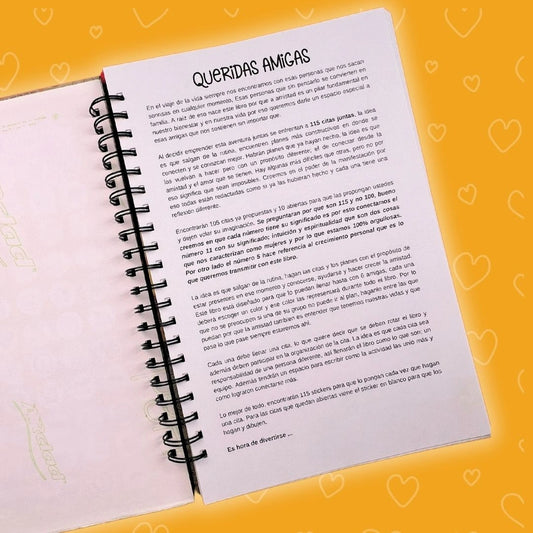 QUERIDAS AMIGAS
En el viaje de la vida siempre nos encontramos con esas personas que nos sacan
sonrisas en cualquier momento. Esas personas que sin pensarlo se convierten en
familia. A raíz de eso nace este libro por que a amistad es un pilar fundamental en
nuestro bienestar y en nuestra vida por eso queremos darle un espacio especial a
esas amigas que nos sostienen sin importar que.
Al decidir emprender esta aventura juntas se enfrentan a 115 citas juntas, la idea
es que salgan de la rutina, encuentren planes más constructivos en donde se
conecten y se conozcan mejor. Habrán planes que ya hayan hecho, la idea es que
los vuelvan a hacer pero con un propósito diferente, el de conectar desde la
amistad y el amor que se tienen. Hay algunas más difíciles que otras, pero no por
eso significa que sean imposibles. Creemos en el poder de la manifestación por
eso todas están redactadas como si ya las hubieran hecho y cada una tiene una
reflexión diferente.
Encontrarán 105 citas ya propuestas y 10 abiertas para que las propongan ustedes
y dejen volar su imaginación. Se preguntaran por que son 115 y no 100, bueno
creemos en que cada número tiene su significado es por esto conectamos el
número 11 con su significado; intuición y espiritualidad que son dos cosas
que nos caracterizan como mujeres y por lo que estamos 100% orgullosas.
Por otro lado el número 5 hace referencia al crecimiento personal que es lo
que queremos transmitir con este libro.
La idea es que salgan de la rutina, hagan las citas y los planes con el propósito de
estar presentes en ese momento y conocerse, ayudarse y hacer crecer la amistad.
Este libro está diseñado para que lo puedan llenar hasta con 6 amigas, cada una
deberá escoger un color y ese color las representará durante todo el libro. Por lo
que no se preocupen si una de su grupo no puede ir al plan, haganlo entre las que
puedan por que la amistad también es entender que tenemos nuestras vidas y que
pase lo que pase siempre estaremos ahí.
Cada una debe llenar una cita, lo que quiere decir que se deben rotar el libro y
además deben participar en la organización de la cita. La idea es que cada cita sea
responsabilidad de una persona diferente, así llenarán el libro como lo que son: un
equipo. Además tendrán un espacio para escribir como la actividad las unió más y
como lograron conectarse más.
Lo mejor de todo, encontrarán 115 stickers para que lo pongan cada vez que hagan
una cita. Para las citas que quedan abiertas viene el sticker en blanco para que los
hagan y dibujen.
Es hora de divertirse ...